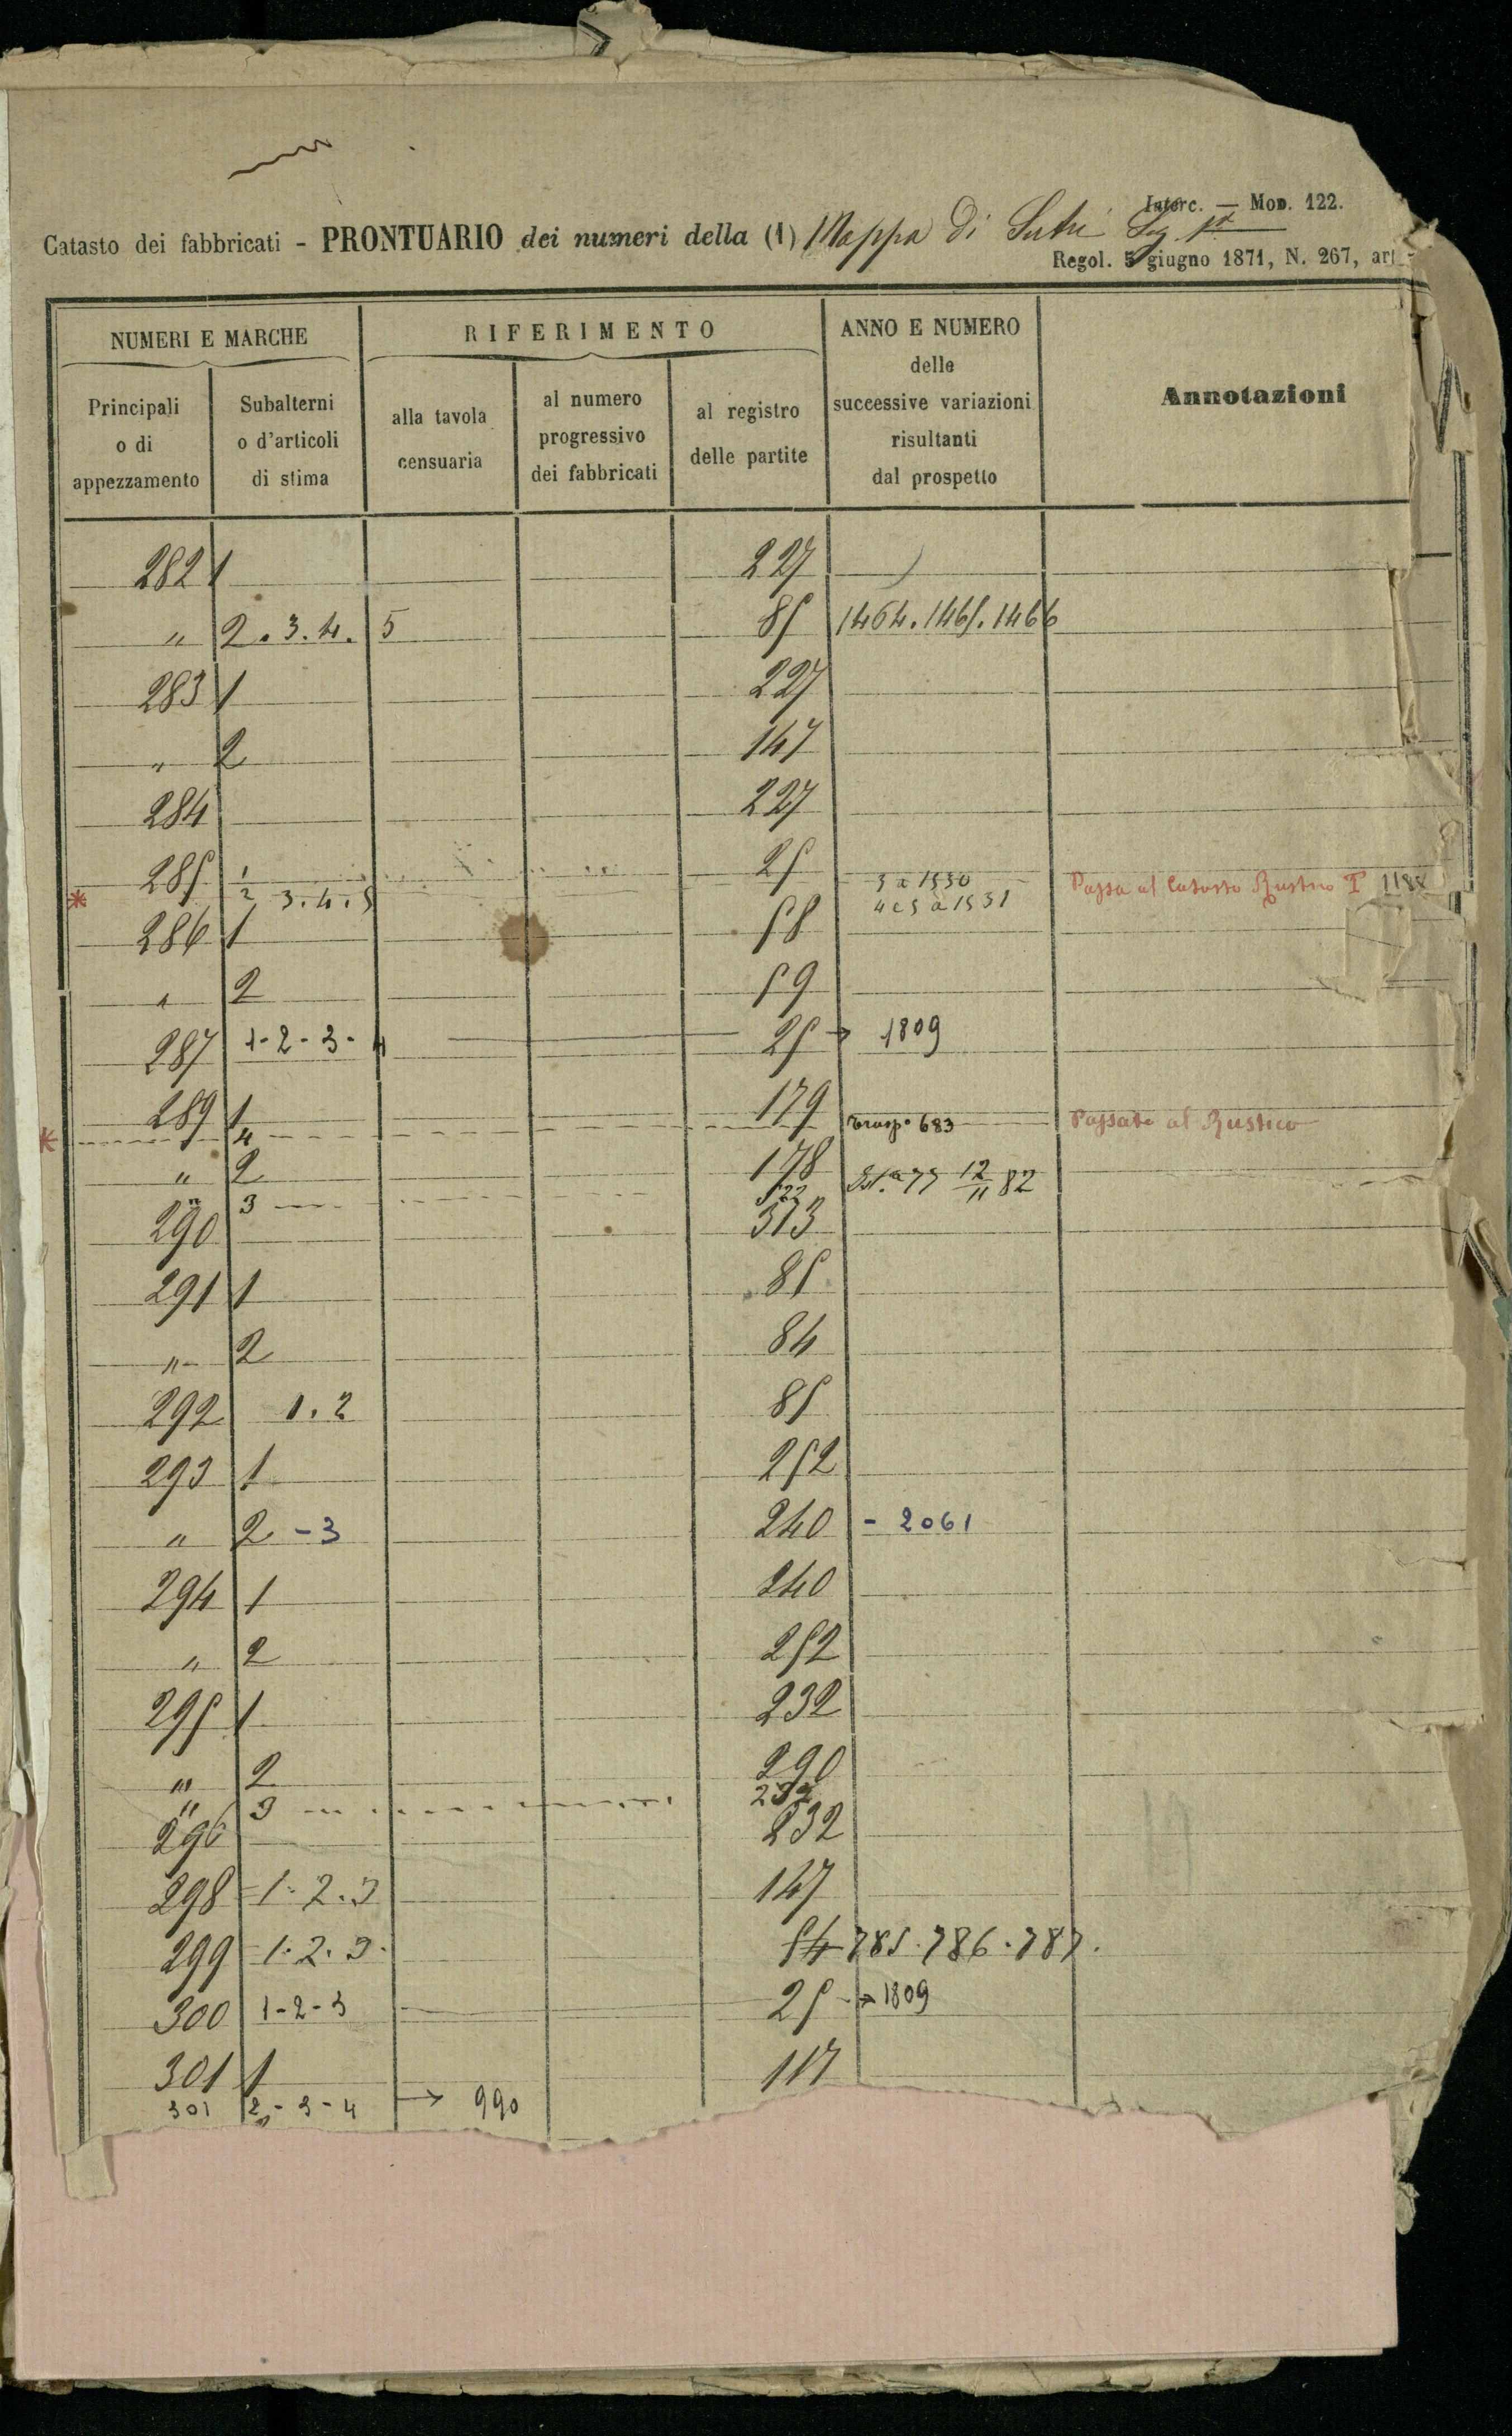 Interc. — Mod. 122.
Catasto dei fabbricati - PRONTUARIO dei numeri della (1) Mappa di Sutri Sez. 1ª
Regol. 5 giugno 1871, N. 267, art
NUMERI E MARCHE
RIFERIMENTO
ANNO E NUMERO
delle
successive variazioni
risultanti
dal prospetto
Annotazioni
Principali
o di
appezzamento
Subalterni
o d'articoli
di stima
alla tavola
censuaria
al numero
progressivo
dei fabbricati
al registro
delle partite
282 1 227
" 2. 3. 4. 5 85 1464. 1465. 1466
283 1 227
" 2 147
284 227
285 1 25 3 a 1530 Passa al Catasto Rustico 1188
* 2 3. 4. 5 4 e 5 a 1531
286 1 58
" 2 59
287 1-2-3-4 25 → 1809
289 1 179 Trasp. 683 Passato al Rustico
* 4
" 2 178 77 12/11 82
" 3 522
290 313
291 1 85
" 2 84
292 1. 2 85
293 1 252
" 2 - 3 240 - 2061
294 1 240
" 2 252
295 1 232
" 2 290
" 3 232
296 232
298 1. 2. 3 147
299 1. 2. 3. 54 785. 786. 787.
300 1-2-3 25 → 1809
301 1 117
301 2-3-4 → 990